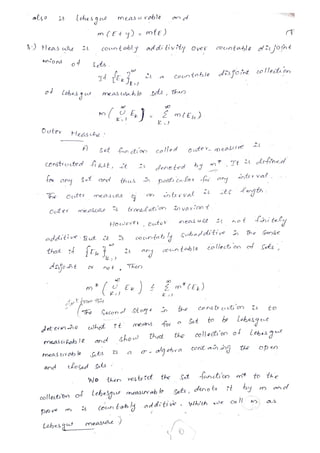 also is lebesgue measurable and
m(E+y) = m(E)
3) Measure is countably additivity over countable disjoint
unions of sets.
If {Ek}∞k=1 is a countable disjoint collection
of lebesgue measurable sets, then
m(∞∪k=1 Ek) = ∞Σk=1 m(Ek)
Outer Measure:
A set function called outer-measure is
constructed first, it is denoted by m*. It is defined
for any set and thus in particular for any interval.
The outer measure of an interval is its length.
Outer measure is translation invariant
However, outer measure is not finitely
additive. But it is countably subadditive in the sense
that if {Ek}∞k=1 is any countable collection of sets,
disjoint or not, Then
m*(∞∪k=1 Ek) ≤ ∞Σk=1 m*(Ek)
(The Second Stage in the construction is to
determine what it means for a set to be Lebesgue
measurable and show that the collection of Lebesgue
measurable sets is a σ-algebra containing the open
and closed sets.
We then restrict the set function m* to the
collection of Lebesgue measurable sets, denote it by m and
prove m is countably additive. Which we call m as
Lebesgue measure)